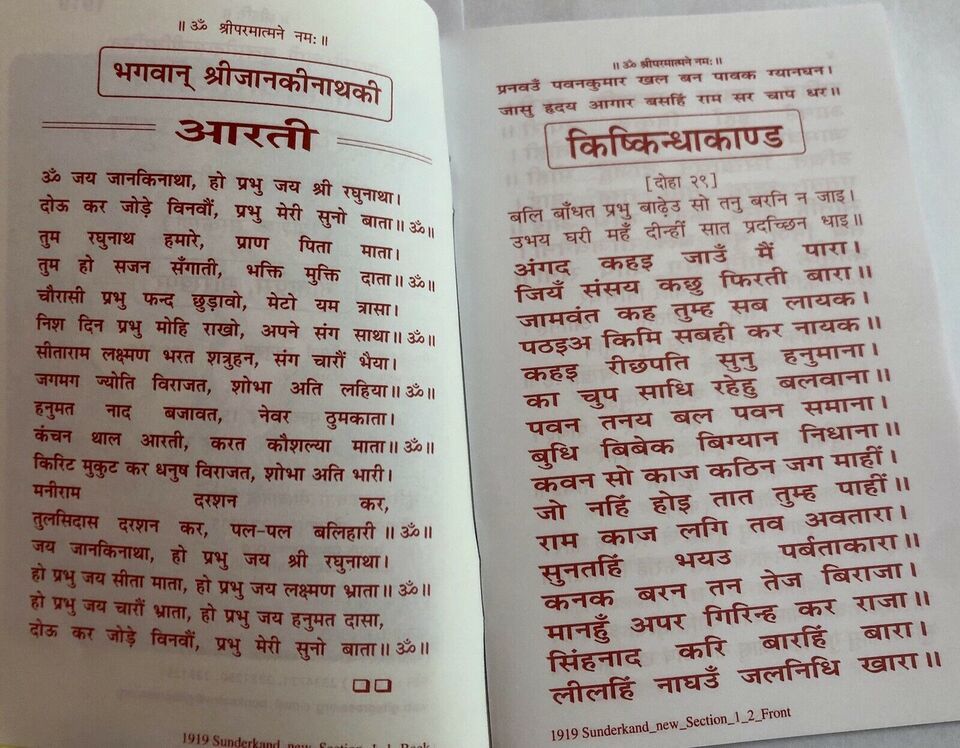 ॥ ॐ श्रीपरमात्मने नमः॥
भगवान् श्रीजानकीनाथकी
आरती
ॐ जय जानकिनाथा, हो प्रभु जय श्री रघुनाथा।
दोऊ कर जोड़े विनवौं, प्रभु मेरी सुनो बाता॥ॐ॥
तुम रघुनाथ हमारे, प्राण पिता माता।
तुम हो सजन सँगाती, भक्ति मुक्ति दाता॥ॐ॥
चौरासी प्रभु फन्द छुड़ावो, मेटो यम त्रासा।
निश दिन प्रभु मोहि राखो, अपने संग साथा॥ॐ॥
सीताराम लक्ष्मण भरत शत्रुहन, संग चारौं भैया।
जगमग ज्योति विराजत, शोभा अति लहिया॥ॐ॥
हनुमत नाद बजावत, नेवर ठुमकाता।
कंचन थाल आरती, करत कौशल्या माता॥ॐ॥
किरिट मुकुट कर धनुष विराजत, शोभा अति भारी।
मनीराम दरशन कर,
तुलसिदास दरशन कर, पल-पल बलिहारी॥ॐ॥
जय जानकिनाथा, हो प्रभु जय श्री रघुनाथा।
हो प्रभु जय सीता माता, हो प्रभु जय लक्ष्मण भ्राता॥ॐ॥
हो प्रभु जय चारौं भ्राता, हो प्रभु जय हनुमत दासा,
दोऊ कर जोड़े विनवौं, प्रभु मेरी सुनो बाता॥ॐ॥
1919 Sunderkand_new_Section_1_1_Back
॥ ॐ श्रीपरमात्मने नमः॥
प्रनवउँ पवनकुमार खल बन पावक ग्यानघन।
जासु हृदय आगार बसहिं राम सर चाप धर॥
किष्किन्धाकाण्ड
[दोहा २९]
बलि बाँधत प्रभु बाढ़ेउ सो तनु बरनि न जाइ।
उभय घरी महँ दीन्हीं सात प्रदच्छिन धाइ॥
अंगद कहइ जाउँ मैं पारा।
जियँ संसय कछु फिरती बारा॥
जामवंत कह तुम्ह सब लायक।
पठइअ किमि सबही कर नायक॥
कहइ रीछपति सुनु हनुमाना।
का चुप साधि रहेहु बलवाना॥
पवन तनय बल पवन समाना।
बुधि बिबेक बिग्यान निधाना॥
कवन सो काज कठिन जग माहीं।
जो नहिं होइ तात तुम्ह पाहीं॥
राम काज लगि तव अवतारा।
सुनतहिं भयउ पर्बताकारा॥
कनक बरन तन तेज बिराजा।
मानहुँ अपर गिरिन्ह कर राजा॥
सिंहनाद करि बारहिं बारा।
लीलहिं नाघउँ जलनिधि खारा॥
1919 Sunderkand_new_Section_1_2_Front